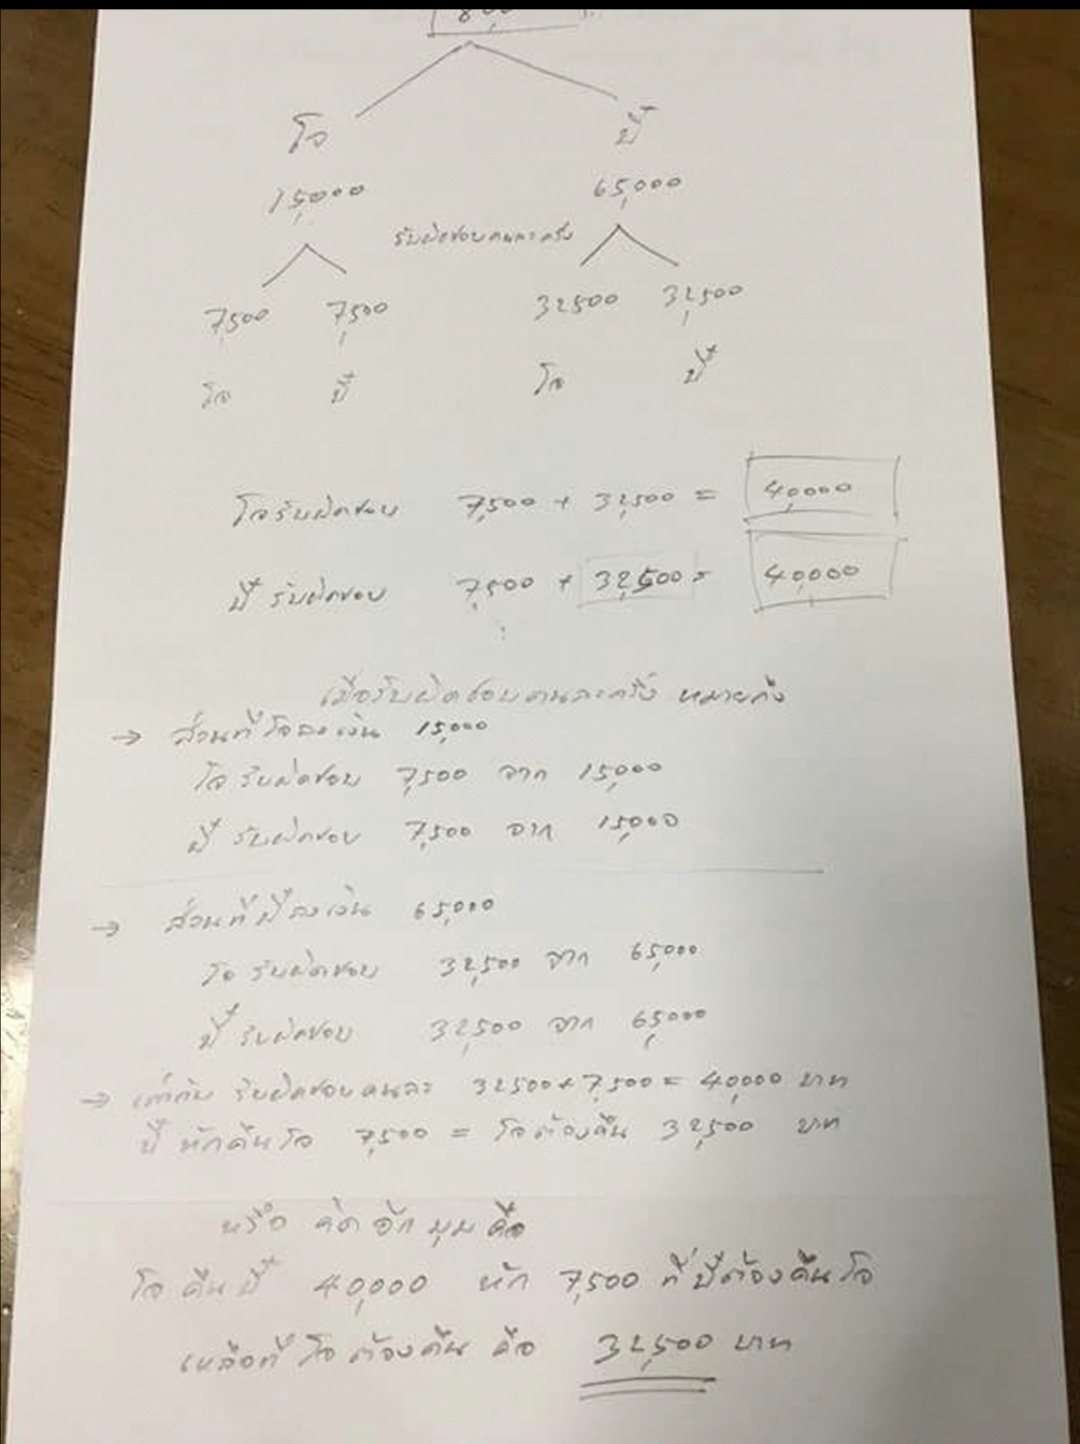 โจ ปี๋
15,000 65,000
รับผิดชอบคนละครึ่ง
7,500 7,500 32,500 32,500
โจ ปี๋ โจ ปี๋
โจรับผิดชอบ 7,500 + 32,500 = 40,000
ปี๋ รับผิดชอบ 7,500 + 32,500 = 40,000
เมื่อรับผิดชอบคนละครึ่ง หมายถึง
→ ส่วนที่โจลงเงิน 15,000
โจ รับผิดชอบ 7,500 จาก 15,000
ปี๋ รับผิดชอบ 7,500 จาก 15,000
→ ส่วนที่ปี๋ลงเงิน 65,000
โจ รับผิดชอบ 32,500 จาก 65,000
ปี๋ รับผิดชอบ 32,500 จาก 65,000
→ เท่ากับ รับผิดชอบคนละ 32,500 + 7,500 = 40,000 บาท
ปี๋ หักคืนโจ 7,500 = โจต้องคืน 32,500 บาท
หรือ คิด อีก มุม คือ
โจ คืน ปี๋ 40,000 หัก 7,500 ที่ปี๋ต้องคืนโจ
เหลือที่ โจ ต้องคืน คือ 32,500 บาท